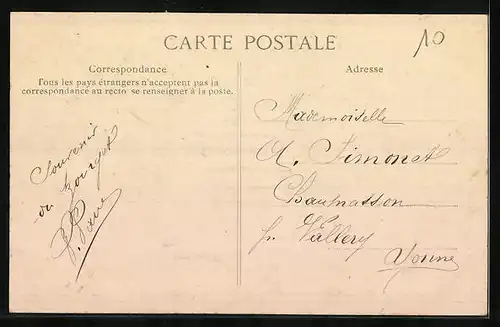 CARTE POSTALE
10
Correspondance
Tous les pays étrangers n'acceptent pas la
correspondance au recto se renseigner à la poste.
Adresse
Souvenir
du Bourget
Mademoiselle
A. Simonet
Chaumasson
pr. Vallery
Yonne